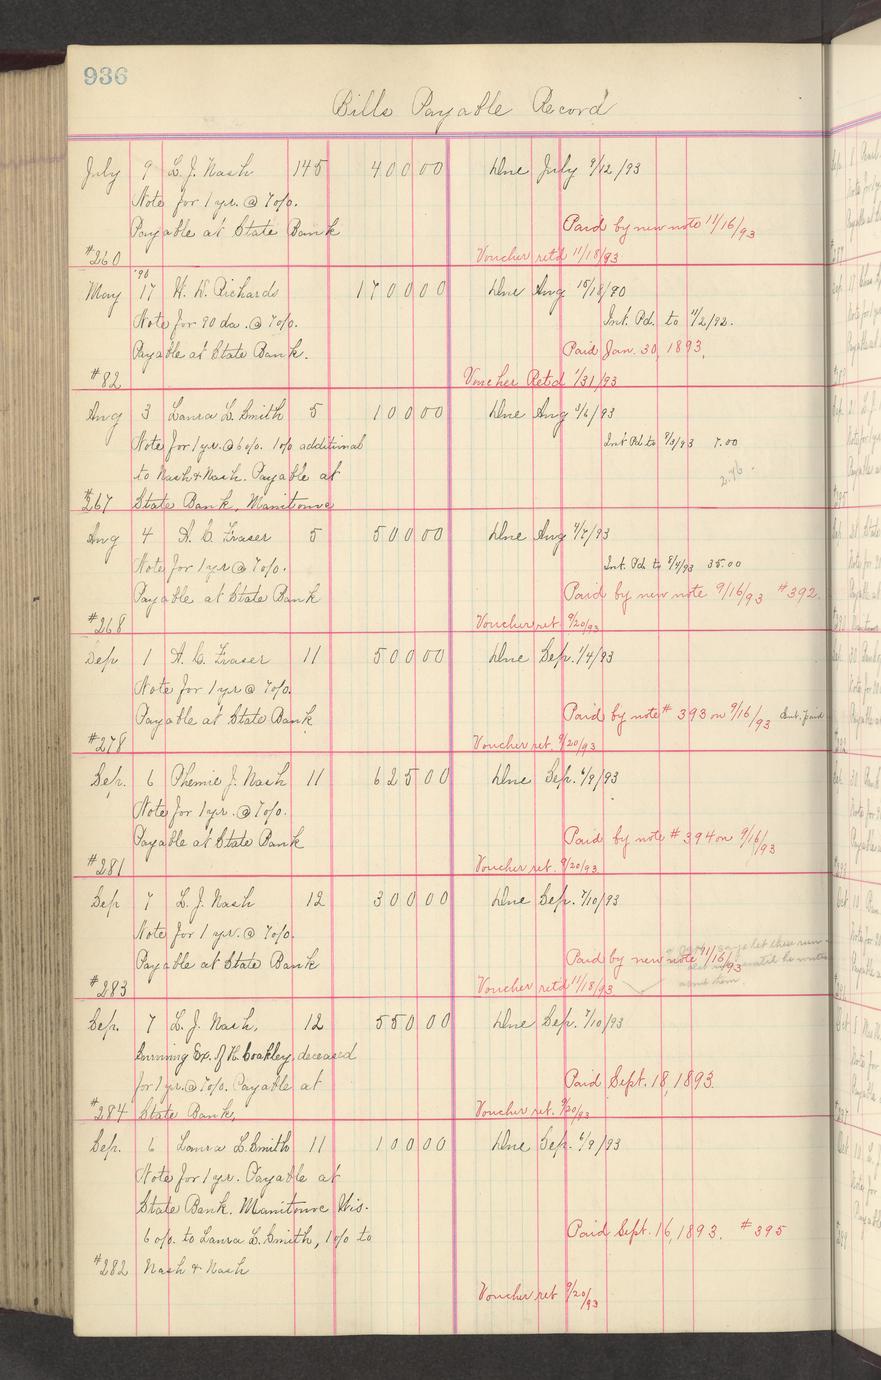 936
Bills Payable Record
July 9 L. J. Nash 145 400 00 Due July 9/12/93
Note for 1 yr. @ 7 o/o.
Payable at State Bank Paid by new note 11/16/93
#260 Voucher ret'd 11/18/93
'90
May 17 H. W. Richards 1700 00 Due Aug 15/18/90
Note for 90 da. @ 7 o/o. Int. Pd. to 11/2/92.
Payable at State Bank. Paid Jan. 30, 1893,
#82 Voucher Ret'd 1/31/93
Aug 3 Laura L. Smith 5 100 00 Due Aug 3/6/93
Note for 1 yr. @ 6 o/o. 1 o/o additional Int Pd to 8/3/93 7.00
to Nash & Nash. Payable at
#267 State Bank, Manitowoc
Aug 4 A. C. Fraser 5 500 00 Due Aug 4/7/93
Note for 1 yr @ 7 o/o. Int. Pd. to 8/4/93 35.00
Payable at State Bank Paid by new note 9/16/93 #392.
#268 Voucher ret. 9/20/93
Sep 1 A. C. Fraser 11 500 00 Due Sep. 1/4/93
Note for 1 yr @ 7 o/o.
Payable at State Bank Paid by note # 393 on 9/16/93 Int. paid
#278 Voucher ret. 9/20/93
Sep. 6 Phemie J. Nash 11 625 00 Due Sep. 6/9/93
Note for 1 yr. @ 7 o/o.
Payable at State Bank Paid by note # 394 on 9/16/93
#281 Voucher ret. 9/20/93
Sep 7 L. J. Nash 12 300 00 Due Sep. 7/10/93
Note for 1 yr. @ 7 o/o.
Payable at State Bank Paid by new note 11/16/93
#283 Voucher ret'd 11/18/93
Sep. 7 L. J. Nash, 12 550 00 Due Sep. 7/10/93
Ex. of H. Coakley, deceased
for 1 yr. @ 7 o/o. Payable at Paid Sept. 18, 1893
#284 State Bank, Voucher ret. 9/20/93
Sep. 6 Laura L. Smith 11 100 00 Due Sep. 6/9/93
Note for 1 yr. Payable at
State Bank. Manitowoc Wis.
6 o/o. to Laura L. Smith, 1 o/o to Paid Sept. 16, 1893. #395
#282 Nash & Nash
Voucher ret 9/20/93